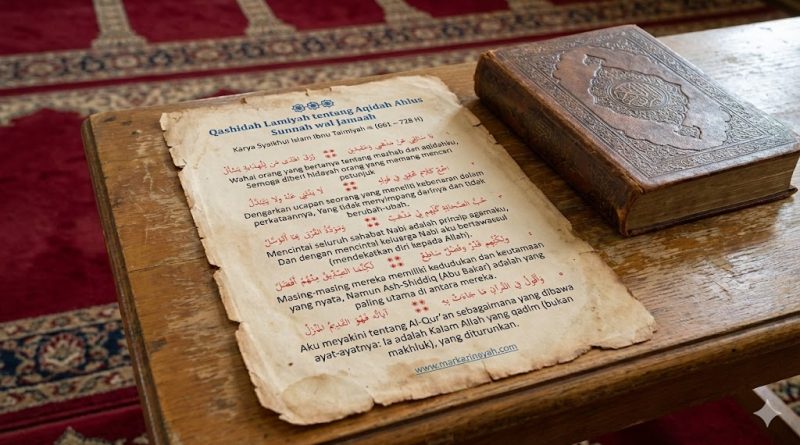 Qashidah Lamiyah tentang Aqidah Ahlus
Sunnah wal Jamaah
Karya Syaikhul Islam Ibnu Taimiyah (661 – 728 H)
يَا سَائِلِي عَنْ مَذْهَبِي وَعَقِيدَتِي رُزِقَ الْهُدَى مَنْ لِلْهِدَايَةِ يَسْأَلُ
Wahai orang yang bertanya tentang mazhab dan aqidahku,
Semoga diberi hidayah orang yang memang mencari
petunjuk
اسْمَعْ كَلَامَ مُحَقِّقٍ فِي قَوْلِهِ لَا يَنْثَنِي عَنْهُ وَلَا يَتَبَدَّلُ
Dengarkan ucapan seorang yang meneliti kebenaran dalam
perkataannya, Yang tidak menyimpang darinya dan tidak
berubah-ubah.
حُبُّ الصَّحَابَةِ كُلِّهِمْ لِي مَذْهَبٌ وَمَوَدَّةُ الْقُرْبَى بِهَا أَتَوَسَّلُ
Mencintai seluruh sahabat Nabi adalah prinzip agamaku,
Dan dengan mencintai keluarga Nabi aku bertawassul
(mendekatkan diri kepada Allah).
وَلِكُلِّهِمْ قَدْرٌ وَفَضْلٌ سَاطِعٌ لَكِنَّمَا الصِّدِّيقُ مِنْهُمْ أَفْضَلُ
Masing-masing mereka memiliki kedudukan dan keutamaan
yang nyata, Namun Ash-Shiddiq (Abu Bakar) adalah yang
paling utama di antara mereka.
وَأَقُولُ فِي الْقُرْآنِ مَا جَاءَتْ بِهِ آيَاتُهُ فَهُوَ الْقَدِيمُ الْمُنْزَلُ
Aku meyakini tentang Al-Qur'an sebagaimana yang dibawa
ayat-ayatnya: Ia adalah Kalam Allah yang qadim (bukan
makhluk), yang diturunkan.